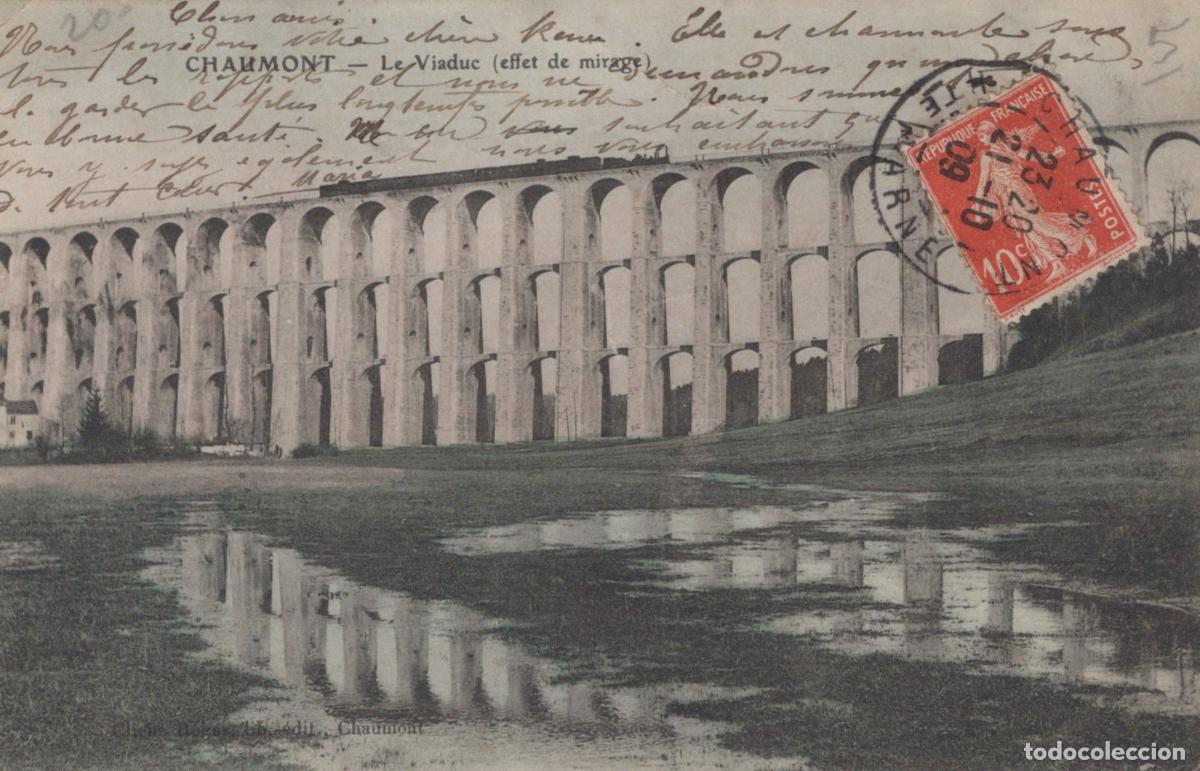 20
Chers amis.
Nous possédons votre chère
Elle est charmante sous
CHAUMONT — Le Viaduc (effet de mirage)
tous les rapports et nous ne demandons qu'une chose,
la garder le plus longtemps possible. Nous sommes
en bonne santé. vous souhaitant que
vous y soyez également nous vous embrassons
de tout cœur. Maria
RÉPUBLIQUE FRANÇAISE
POSTES
10c
CHAUMONT
HTE MARNE
23 20
21-10
09
Cliché édit., Chaumont
todocoleccion